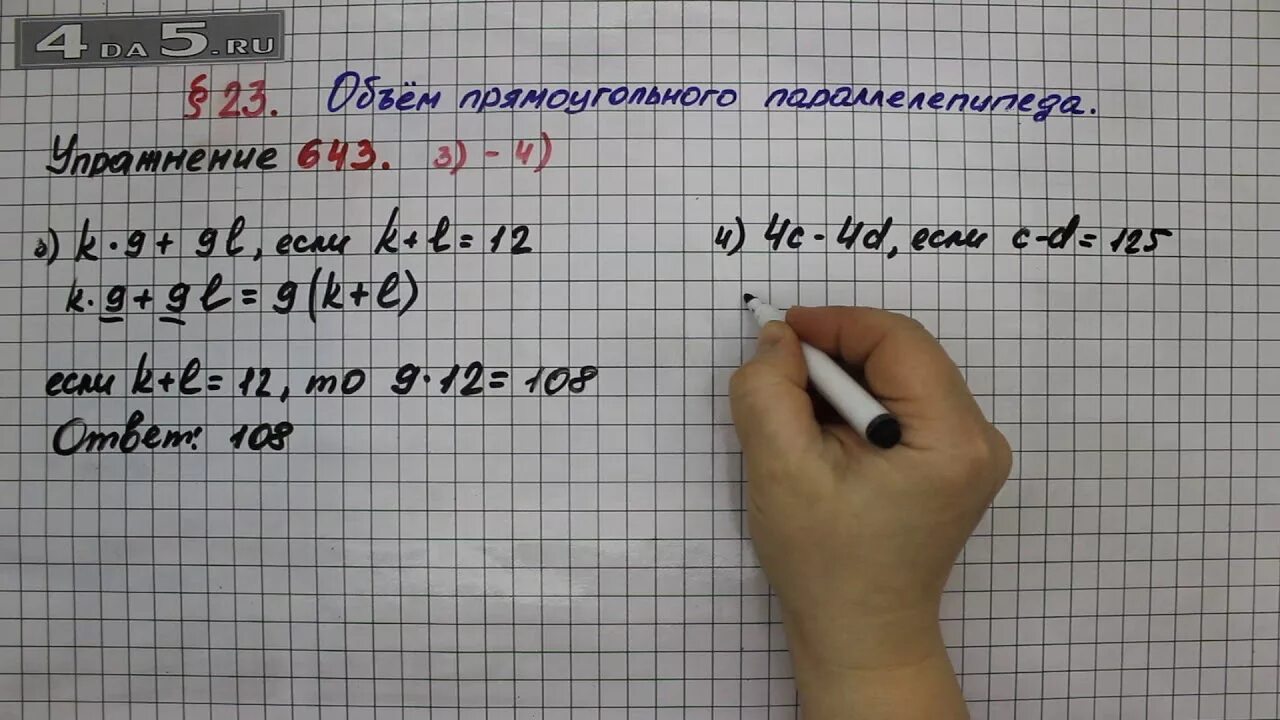 4DA5.RU
§ 23. Объём прямоугольного параллелепипеда.
Упражнение 643. 3) - 4)
3) k·9 + 9l, если k+l = 12
k·9 + 9l = 9(k+l)
если k+l = 12, то 9·12 = 108
Ответ: 108
4) 4c - 4d, если c-d = 125